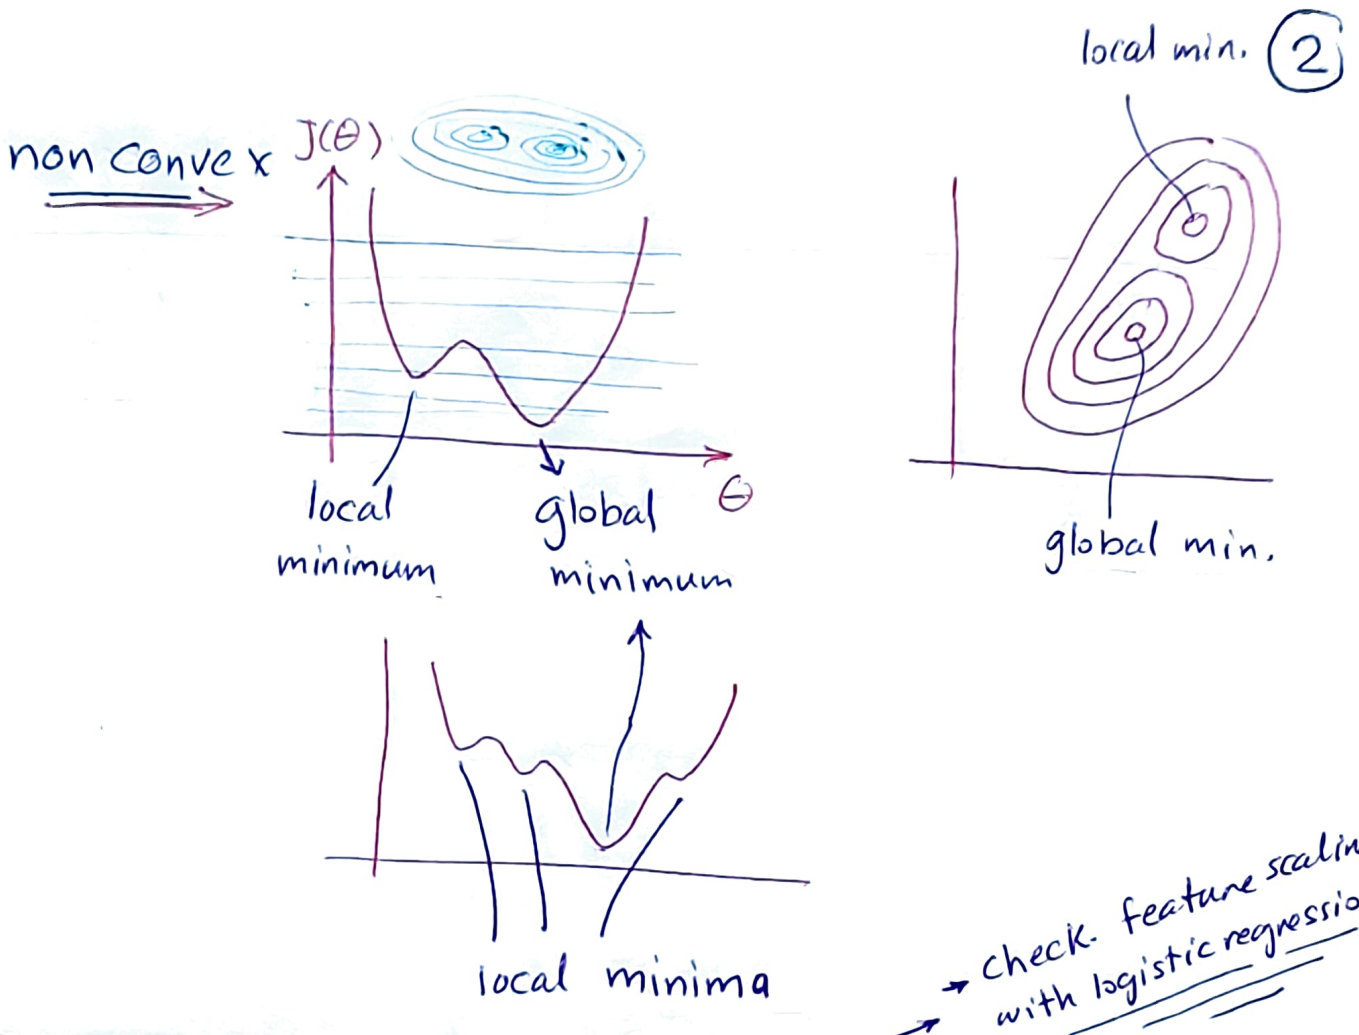 local min. 2
non convex J(θ)
local
minimum
global
minimum
θ
global min.
local minima
→ check. feature scalin
with logistic regressio